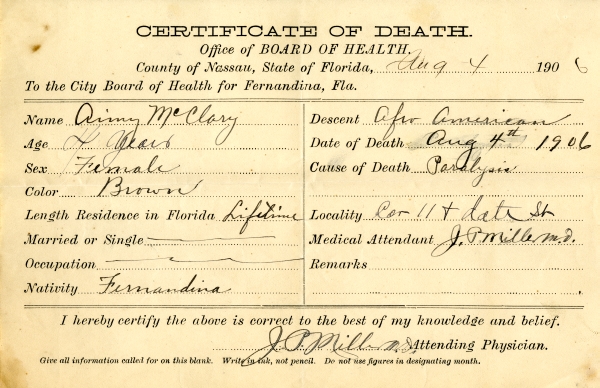 CERTIFICATE OF DEATH.
Office of BOARD OF HEALTH.
County of Nassau, State of Florida, Aug 4 1906
To the City Board of Health for Fernandina, Fla.
Name McClary
Age 4 Years
Sex Female
Color Brown
Length Residence in Florida Lifetime
Married or Single
Occupation
Nativity Fernandina
Descent Afro American
Date of Death Aug 4th 1906
Cause of Death Paralysis
Locality Cor 11 & date St
Medical Attendant J. P. Miller m.d.
Remarks
I hereby certify the above is correct to the best of my knowledge and belief.
J. P. Miller m.d. Attending Physician.
Give all information called for on this blank. Write in ink, not pencil. Do not use figures in designating month.